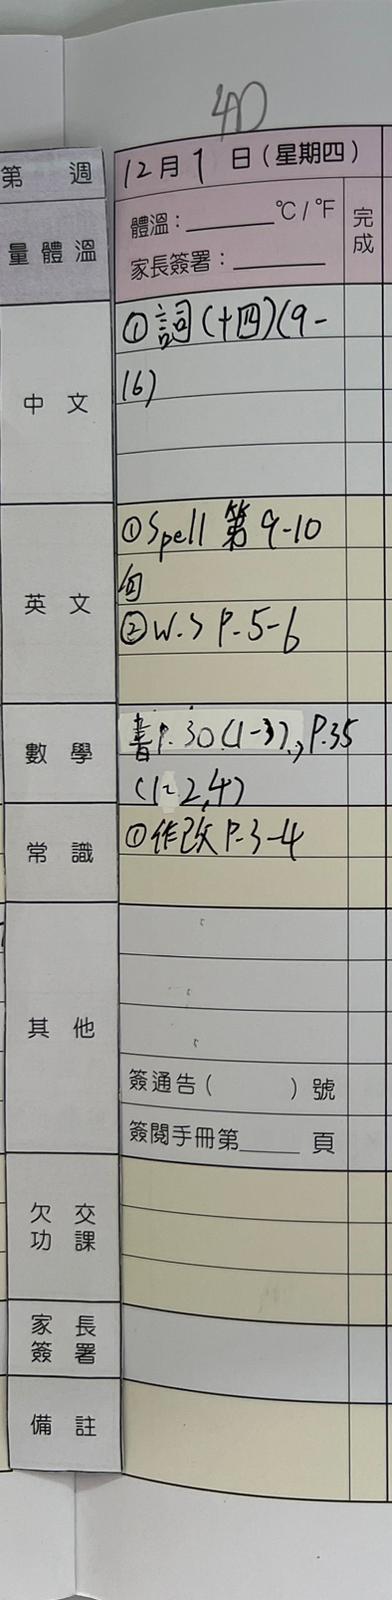 40
第 週
12月1日(星期四)
量體溫
體溫：______°C/°F
家長簽署：______
完成
中文
①詞(十四)(9-
16)
英文
①Spell 第9-10
句
②W.S P.5-6
數學
書P.30(1-3),P.35
(1-2,4)
常識
①作改P.3-4
其他
簽通告( )號
簽閱手冊第____頁
欠交
功課
家長
簽署
備註